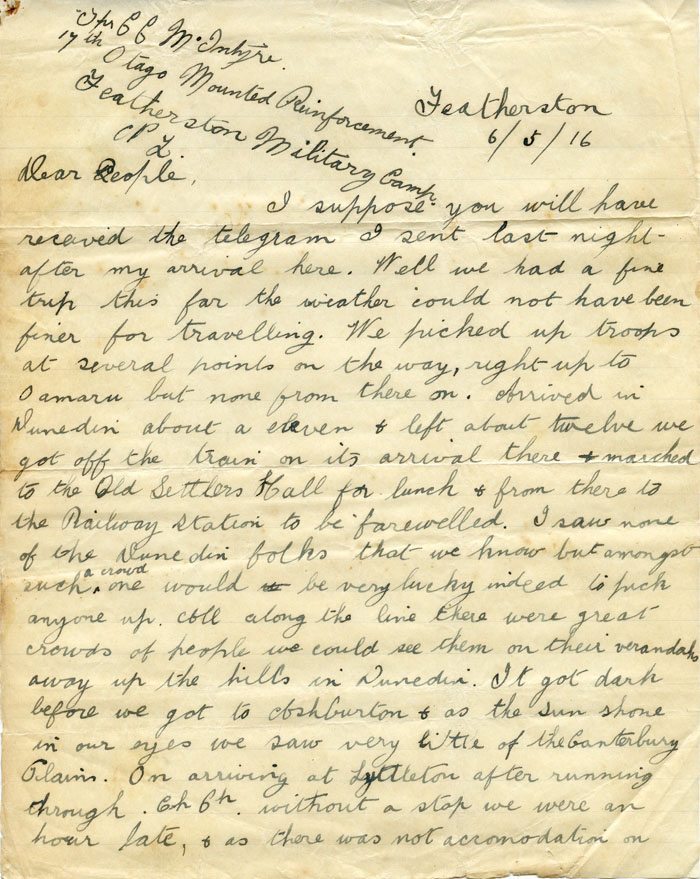 Tpr C C McIntyre.
17th Otago Mounted Reinforcement.
Featherston Military Camp.
Featherston
6/5/16
Dear People,
I suppose you will have
receved the telegram I sent last night
after my arrival here. Well we had a fine
trip this far the weather could not have been
finer for travelling. We picked up troops
at several points on the way, right up to
Oamaru but none from there on. Arrived in
Dunedin about a eleven & left about twelve we
got off the train on its arrival there & marched
to the Old Settlers Hall for lunch & from there to
the Railway Station to be farewelled. I saw none
of the Dunedin folks that we know but amongst
such a crowd one would be very lucky indeed to pick
anyone up. All along the line there were great
crowds of people we could see them on their verandahs
away up the hills in Dunedin. It got dark
before we got to Ashburton & as the sun shone
in our eyes we saw very little of the Canterbury
Plains. On arriving at Lyttleton after running
through Ch Ch. without a stop we were an
hour late, & as there was not accomodation on